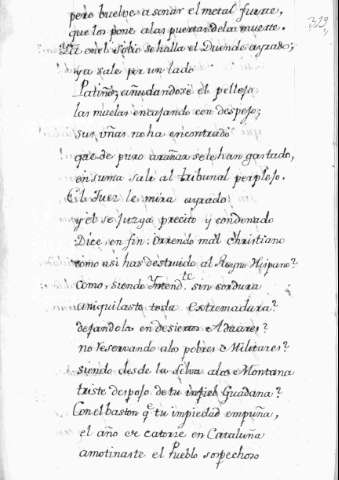 pero buelve a sonar el metal fuerte,
que los pone alas puertas dela muerte.
Ya en el Solio se halla el Duende ayrado;
ya sale por un lado
Patiño; añudandose el pellejo
las muelas encajando con despejo;
sus uñas no ha encontrado
que de puro arañar se le han gastado,
en suma sale al tribunal perplejo.
El Juez le mira ayrado
y él se juzga precito y condenado
Dice en fin: horrendo mal Christiano
como asi has destruido al Reyno Hispano?
Como, siendo Intend.te sin cordura
aniquilaste toda extremadura?
dejandola en desiertos Aduares?
no reservando alos pobres Militares?
siendo desde la silva ala Montana
triste despojo de tu infiel Guadana?
Con el baston q.e tu impiedad empuña,
el año de catorze en Cataluña
amotinaste el Pueblo sospechoso